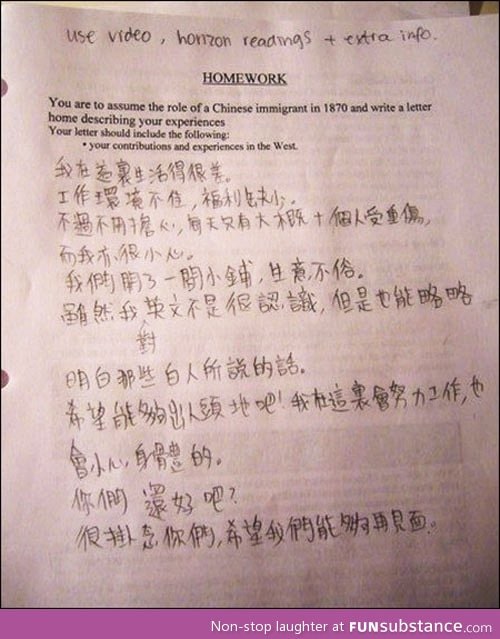 use video, horizon readings + extra info.
HOMEWORK
You are to assume the role of a Chinese immigrant in 1870 and write a letter
home describing your experiences
Your letter should include the following:
• your contributions and experiences in the West.
我在這裏生活得很差。
工作環境不佳，福利缺少。
不過不用擔心，每天只有大概十個人受重傷，
而我亦很小心。
我們開了一間小鋪，生意不俗。
雖然我英文不是很認識，但是也能略略
對
明白那些白人所說的話。
希望能夠出人頭地吧！我在這裏會努力工作，也
會小心身體的。
你們還好吧？
很掛念你們，希望我們能夠再見面。
Non-stop laughter at FUNsubstance.com